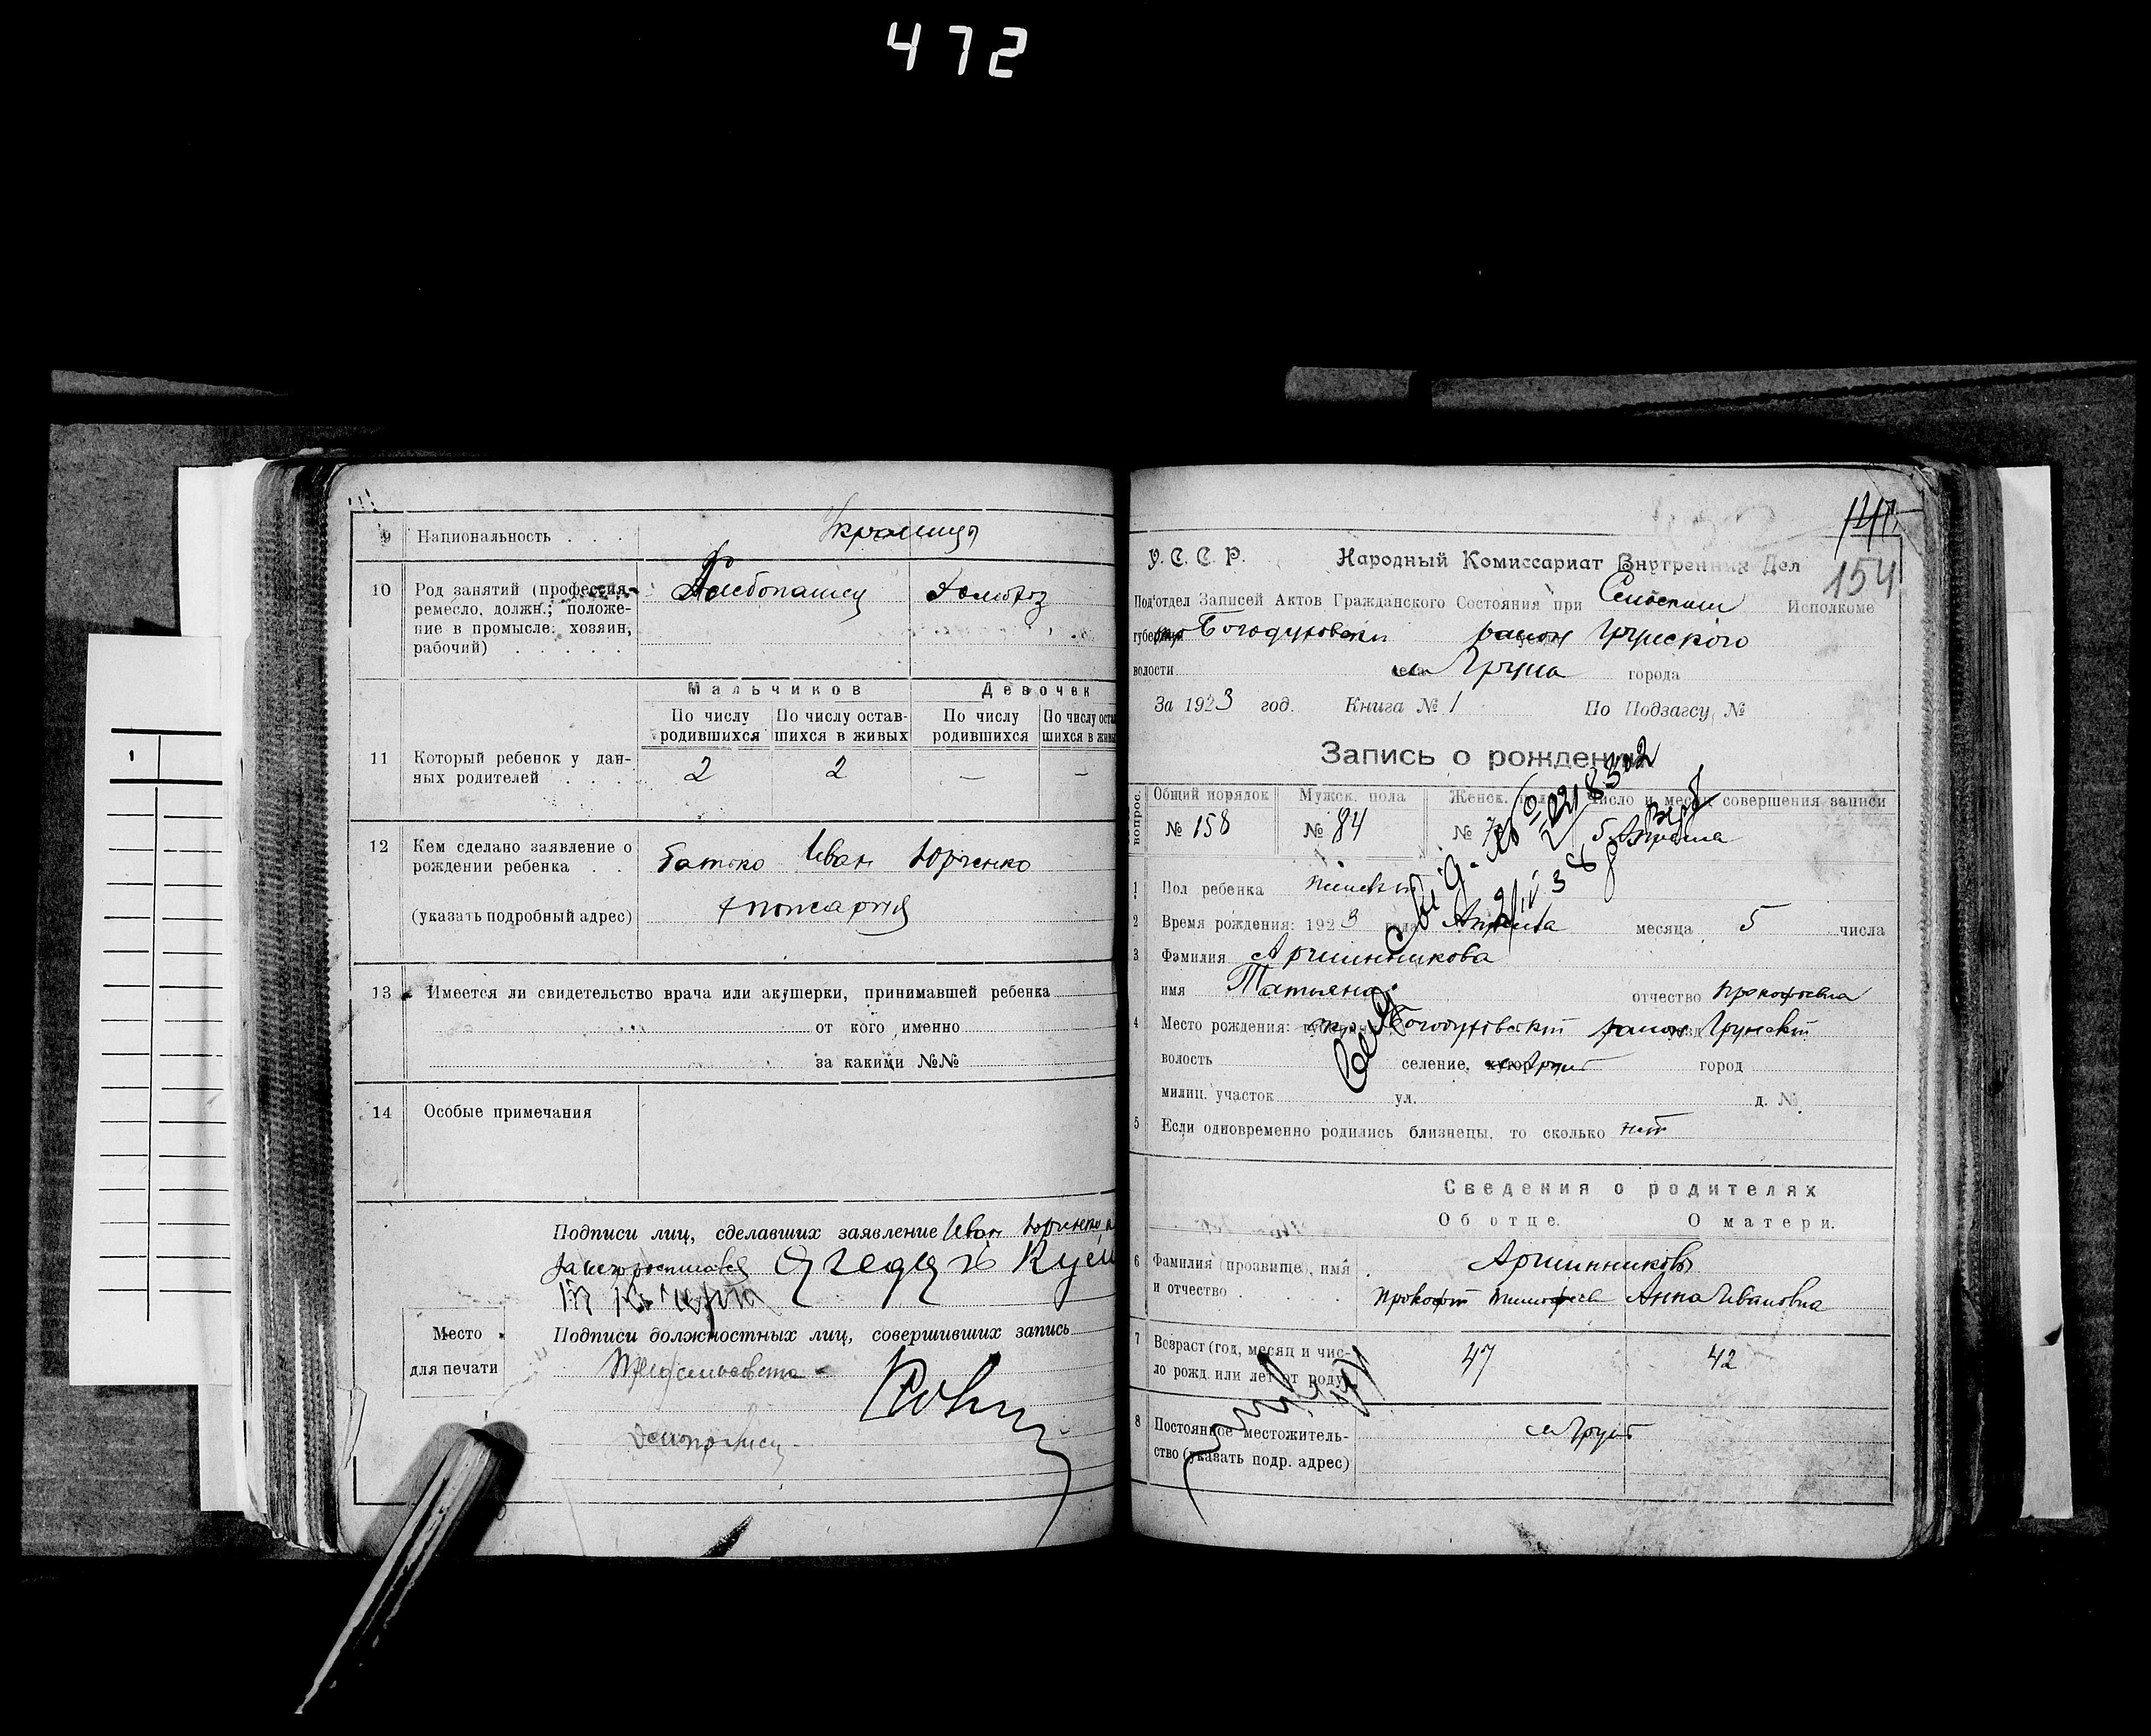 472
9 Национальность . . . Украинцы
10 Род занятий (профессия, ремесло, должн.; положение в промысле: хозяин, рабочий) . . . . .
Хлебопашец
11 Который ребенок у данных родителей . . .
Мальчиков Девочек
По числу родившихся По числу оставшихся в живых По числу родившихся По числу оста шихся в живы
2 2 — —
12 Кем сделано заявление о рождении ребенка . .
Батько Иван Юрченко
(указать подробный адрес)
13 Имеется ли свидетельство врача или акушерки, принимавшей ребенка
от кого именно
за какими №№
14 Особые примечания
Подписи лиц, сделавших заявление Иван Юрченко
Место для печати
Подписи должностных лиц, совершивших запись
Предсельсовета
Делопроизв
141
154
У. С. С. Р. Народный Комиссариат Внутренних Дел
Под'отдел Записей Актов Гражданского Состояния при Сельским Исполкоме
губернии окр Богодуховский район Грунского
волости села м Груна города
За 1923 год. Книга № 1 По Подзагсу №
Запись о рождении
вопрос. Общий порядок Мужск. пола Женск. пола Число и месяц совершения записи
№ 158 № 84 № 5 Апреля
1 Пол ребенка женский
2 Время рождения: 1923 года Апреля месяца 5 числа
3 Фамилия Аршинникова
имя Татьяна отчество Прокофьевна
4 Место рождения: окр. Богодуховский район Грунский
волость селение, хутор м Грунь город
милиц. участок ул. д. №
5 Если одновременно родились близнецы, то сколько нет
Сведения о родителях
Об отце. О матери.
6 Фамилия (прозвище), имя и отчество . . . .
Аршинниковы
Прокофий Тимофеев Анна Ивановна
7 Возраст (год, месяц и число рожд. или лет от роду)
47 42
8 Постоянное местожительство (указать подр. адрес)
м Грунь